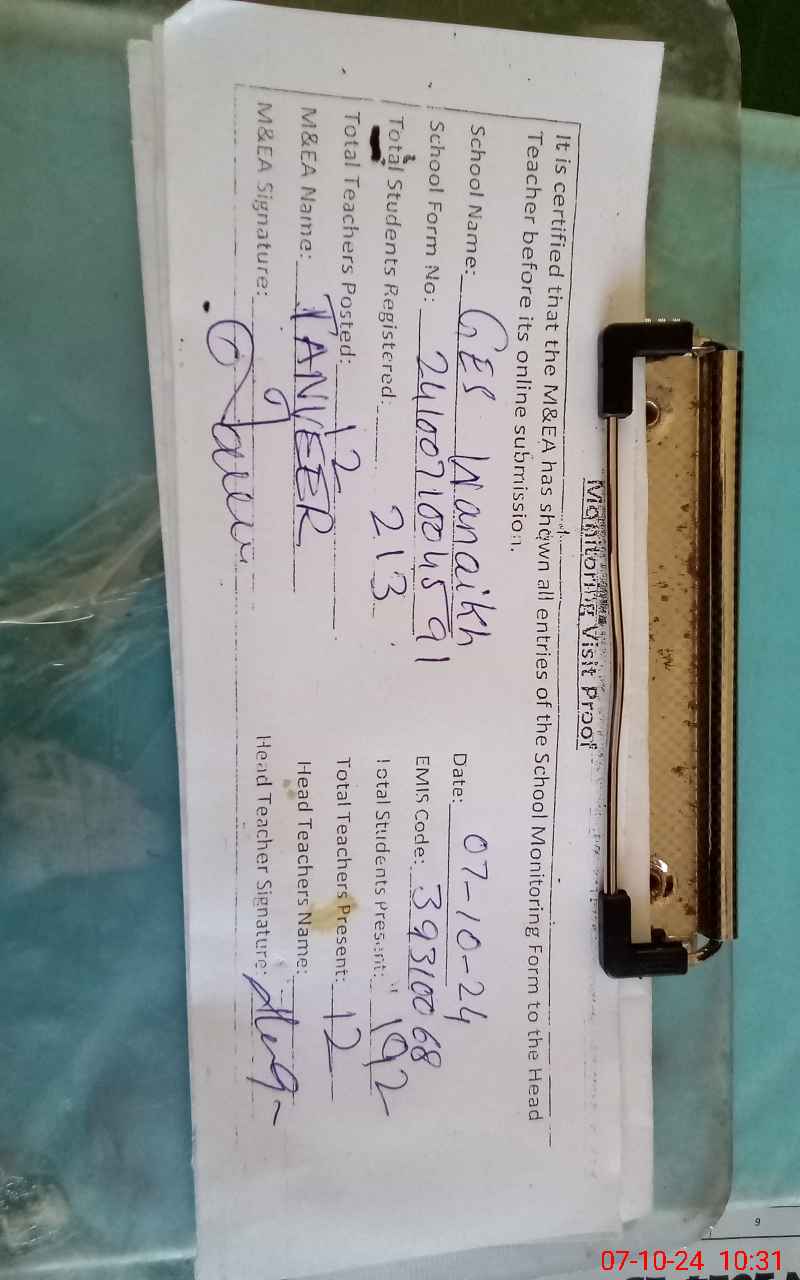 Monitoring Visit Proof
It is certified that the M&EA has shown all entries of the School Monitoring Form to the Head
Teacher before its online submission.
School Name: GES Wanaikh Date: 07-10-24
School Form No: 2410071004591 EMIS Code: 39310068
Total Students Registered: 213 Total Students Present: 192
Total Teachers Posted: 12 Total Teachers Present: 12
M&EA Name: TANVEER Head Teachers Name:
M&EA Signature: Head Teacher Signature:
9
07-10-24 10:31